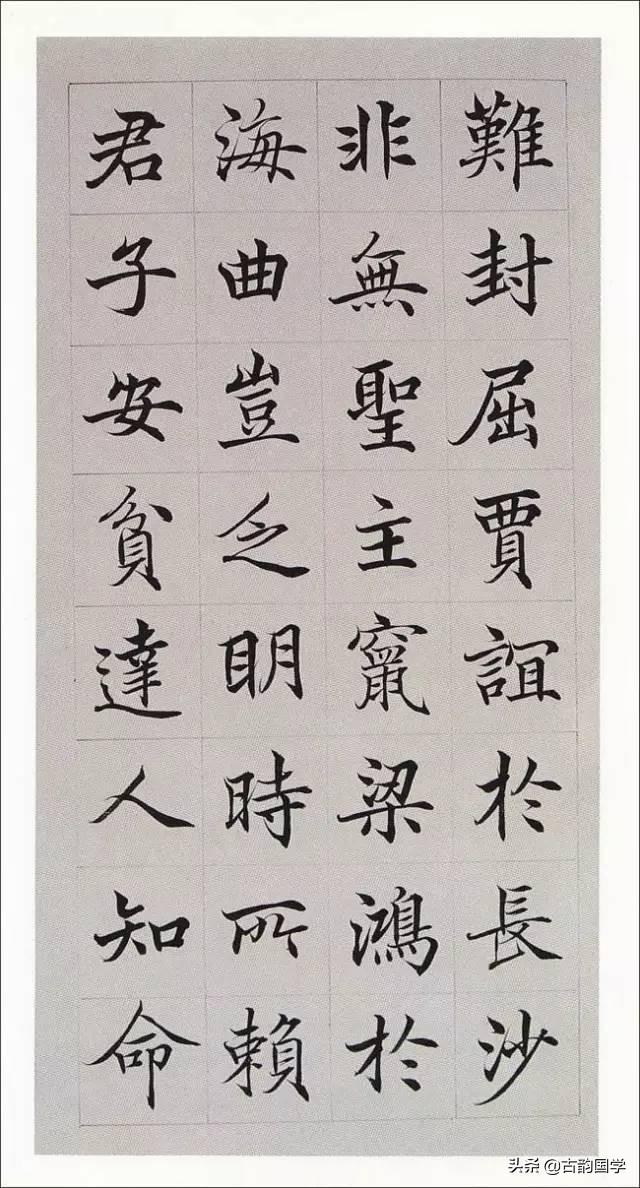 難封屈賈誼於長沙
非無聖主竄梁鴻於
海曲豈乏明時所賴
君子安貧達人知命
头条 @古韵国学